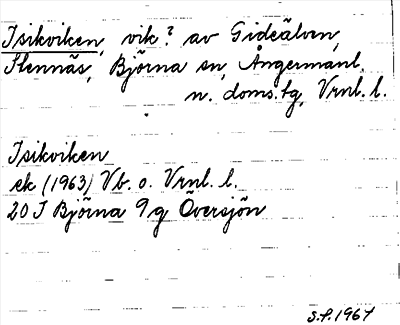 Isikviken, vik? av Gideälven,
Stennäs, Björna sn, Ångermanl.
n. doms.tg, Vrnl. l.
Isikviken
ek (1963) Vb. o. Vrnl. l.
20 J Björna 9 g Översjön
S.F. 1967